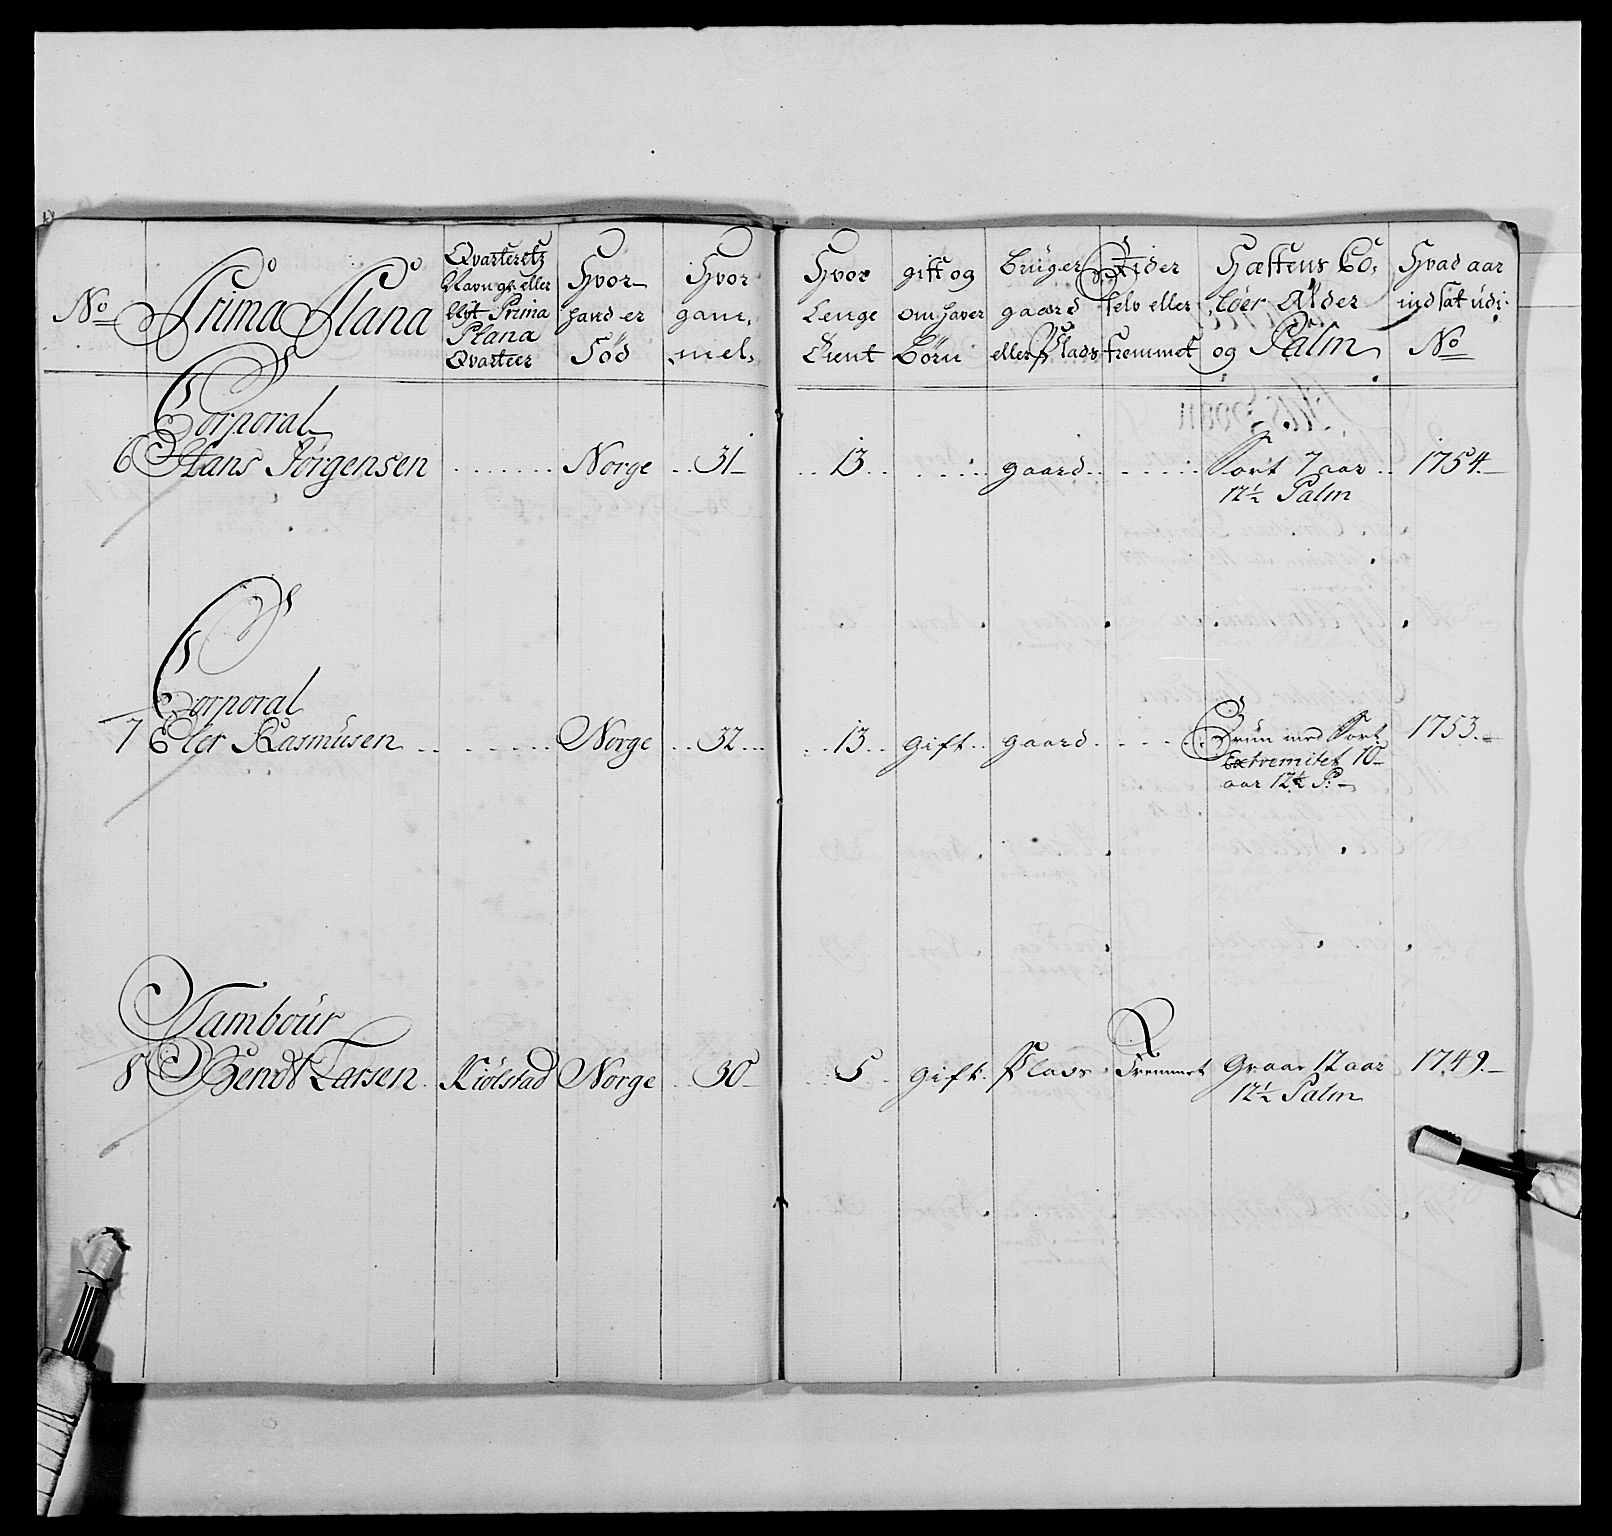 No
Prima Plana
Qvarteretz
Navn og eller
Prima
Plana
Qvarteer
Hvor
hand er
Född
Hvor
gam,
mel,
Hvor
Lenge
tient
gift og
om haver
börn
Bruger
gaard
eller Plads
Rider
selv eller
fremmet
Hæstens Co,
löer Alder
og Palm
Hvad aar
indsat udi
No
Corporal
6 Hans Jörgensen Norge 31 13 gaard Sort 7 aar 1754
12½ Palm
Corporal
7 Eler Rasmusen Norge 32 13 gift gaard Brun med Sort 1753
Extremitet 10
aar 12½ P:
Tambour
8 Bendt Larsen Kiölstad Norge 30 5 gift Plads Fremmet Graae 12 aar 1749
12½ Palm